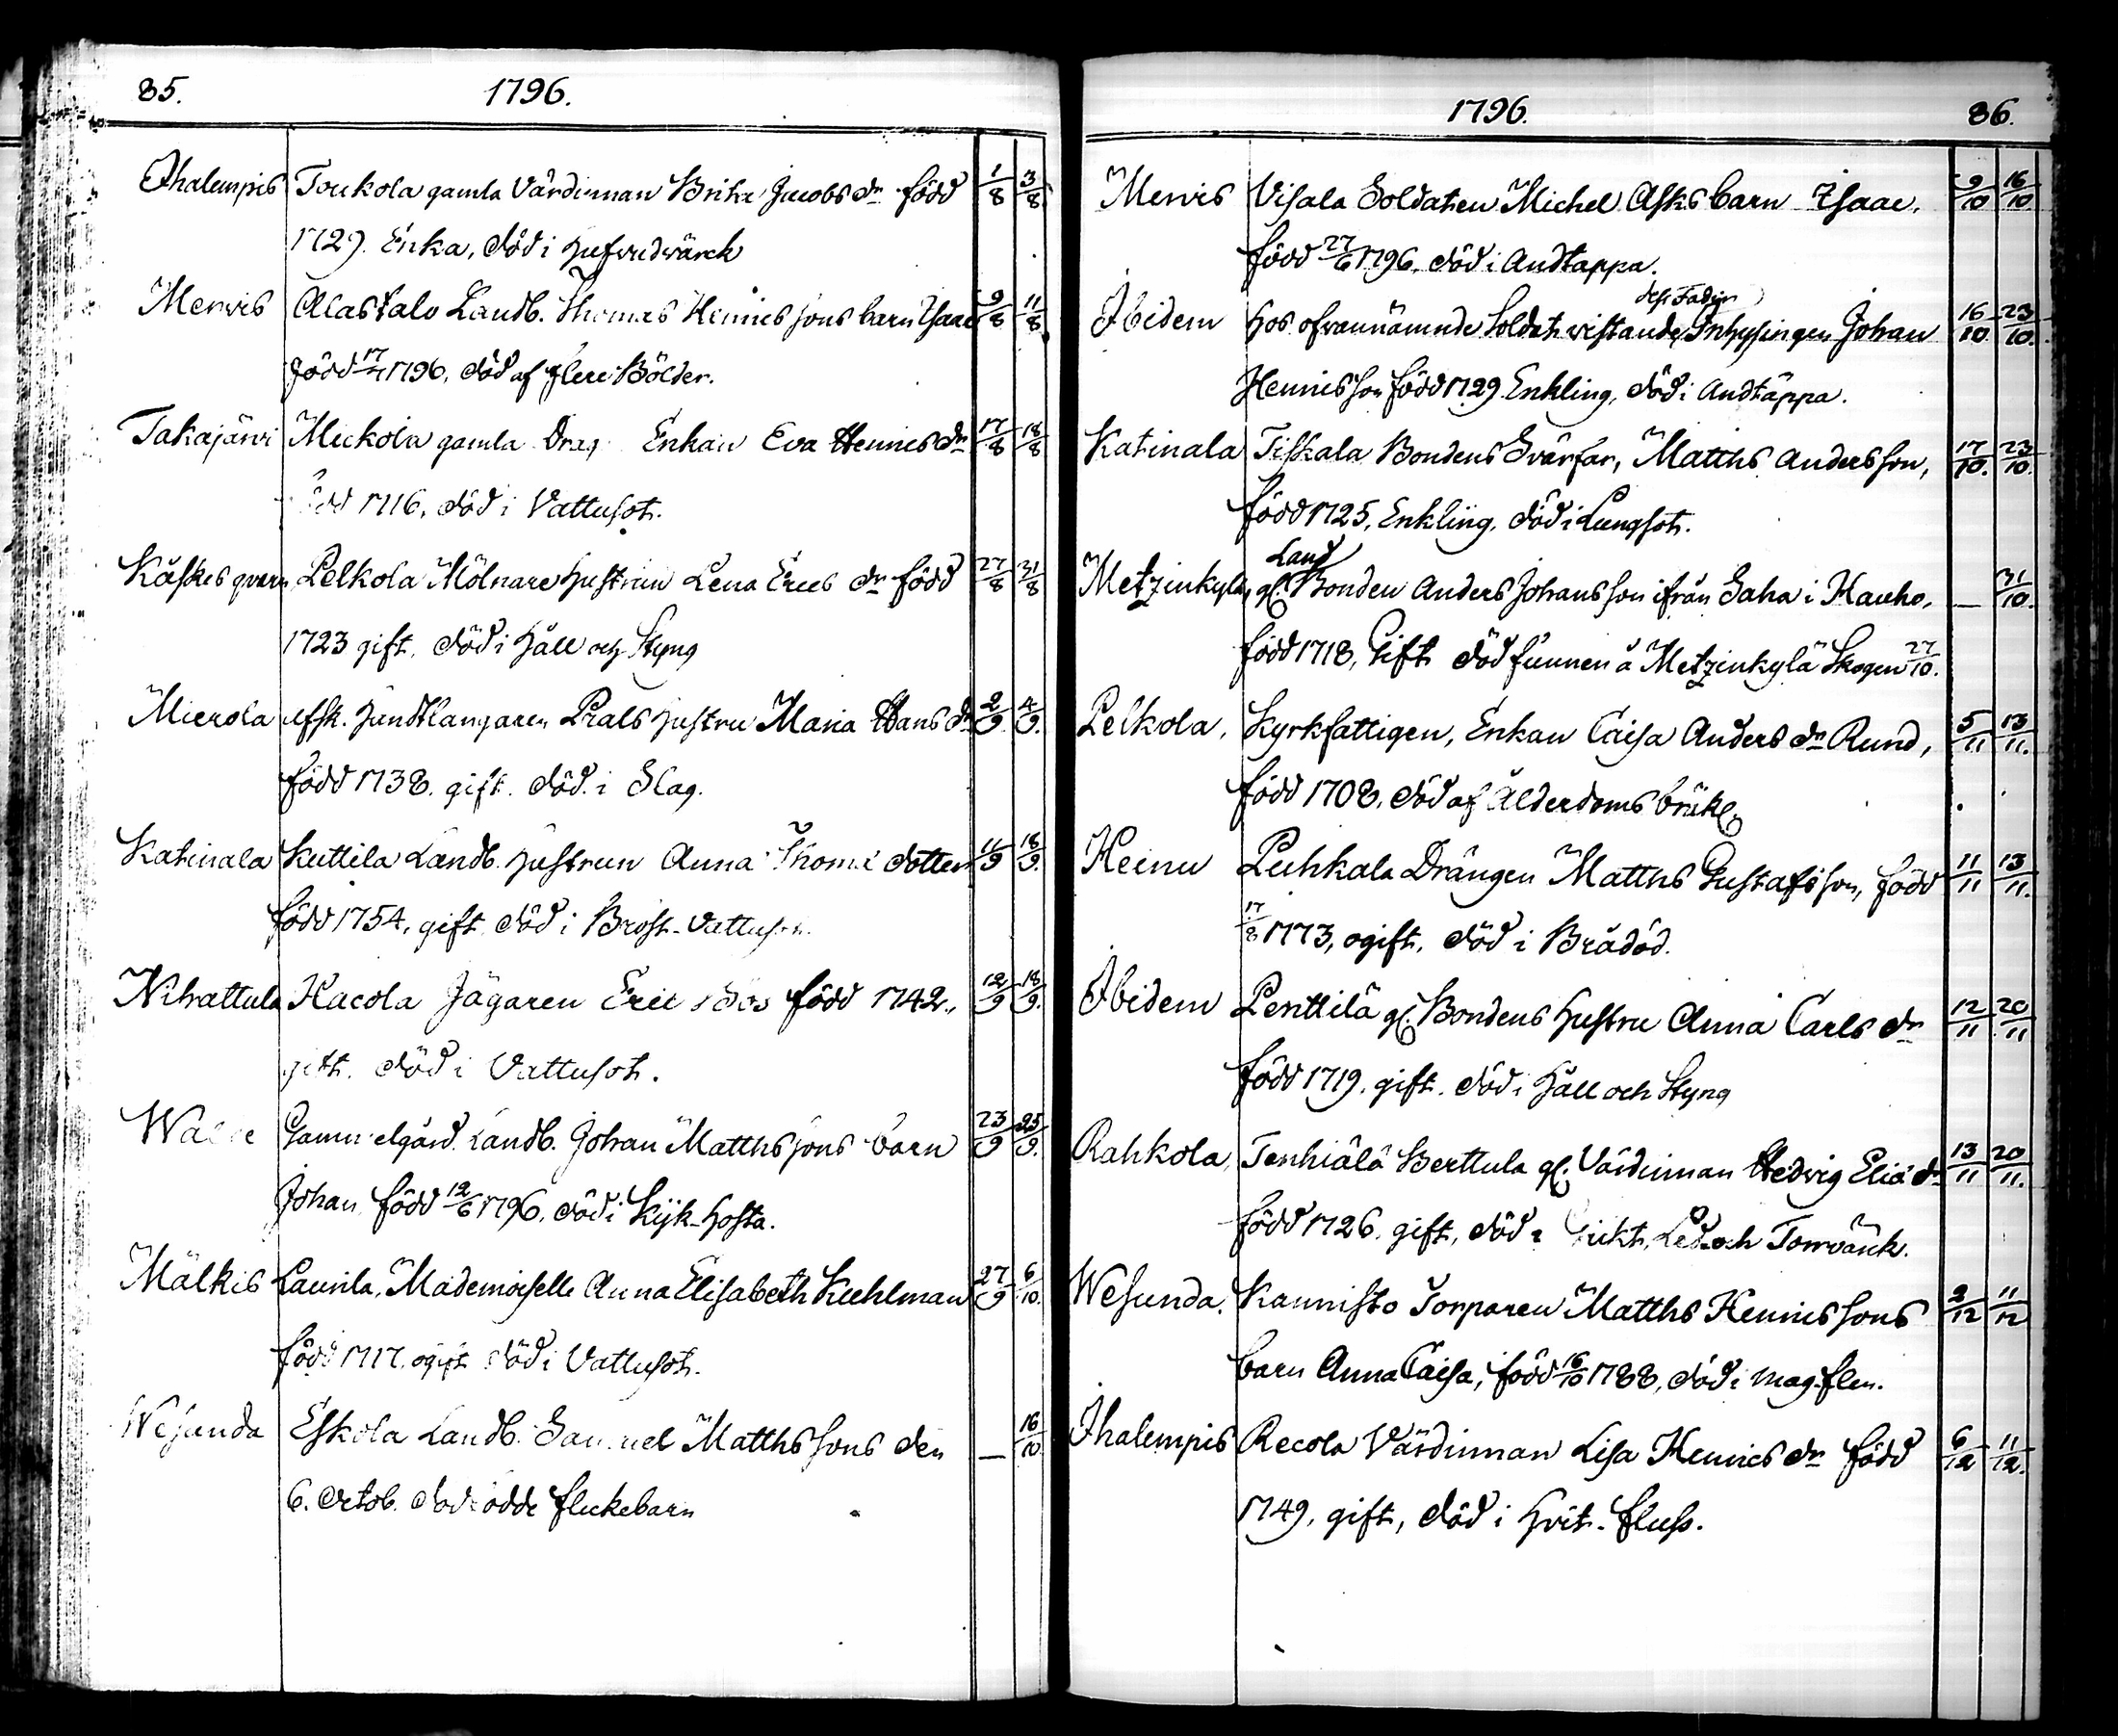 85. 1796.
Ihalempis Toukola gamla Värdinnan Brita Jacobs dr född 1/8 3/8
1729. Enka, död i hufvudvärck
Mervis Alastalo Landb. Thomas Hennes sons barn Isaac 9/8 11/8
född 17/7 1796, död af flere Bölder.
Takajärvi Meckola gamla Enkan Eva Hennes dr 17/8 18/8
1716, död i Vattusot.
Kåskes qvarn Pelkola Mölnare hustrun Lena Erics dr född 27/8 31/8
1723 gift, död i håll och Styng
Mierola afsk. handtlangaren Prals hustru Maria Hans dr 2/9 4/9.
född 1738. gift. död. i Slag.
Katinala Kuttila Landb. hustrun Anna Thomæ dotter 11/9 18/9.
född 1754, gift. död i Bröst-Vattusot.
Nihattula Hacola Jägaren Eric född 1742., 12/9 18/9.
gift. död i Vattusot.
Gammelgård. Landb. Johan Matths sons barn 23/9 25/9.
Johan född 12/6 1796. död i Kijk-hosta.
Mälkis Launila, Mademoiselle Anna Elisabeth Kuhlman 27/9 6/10.
född 1717. ogift död i Vattusot.
Wesunda Eskola Landb. Samuel Matths sons den — 16/10
6. Octob. dödfödde flickebarn
1796. 86.
Mervis Visala Soldaten Michel Asks barn Isaac, 9/10 16/10.
född 27/6 1796. död i Andtäppa.
dess Fader
Ibidem hos ofvannämnde Soldat vistande Inhysingen Johan 16/10 23/10.
Hennes son född 1729. Enkling, död i Andtäppa.
Katinala Tiskala Bondens Svärfar, Matths Anders son, 17/10. 23/10.
född 1725, Enkling, död i Lungsot.
Land
Metzinkylä, gl. Bonden Anders Johans son ifrån Saha i Hauho, — 31/10.
född 1718, Gift död funnen å Metzinkylä Skogen 27/10.
Pelkola, Kyrkfattigen, Enkan Caisa Anders dr Rund, 5/11 13/11.
född 1708, död af Ålderdoms bräkl.
Heinu Puhkala Drängen Matths Gustafs son, född 11/11 13/11.
17/8 1773, ogift, död i Brådöd.
Ibidem Penttilä gl. Bondens hustru Anna Carls dr 12/11 20/11
född 1719. gift. död i håll och Styng
Rahkola, Tenhiälä Berttula gl. Värdinnan Hedvig Eliæ dr 13/11 20/11.
född 1726. gift, död i Gickt, Led och Torrvärck.
Wesunda. Kannisto Torparen Matths Hennes sons 2/12 11/12
barn Anna Caisa, född 16/10 1788, död i mag-flen.
Ihalempis Recola Värdinnan Lisa Hennes dr född 6/12 11/12.
1749, gift, död i hvit-fluss.